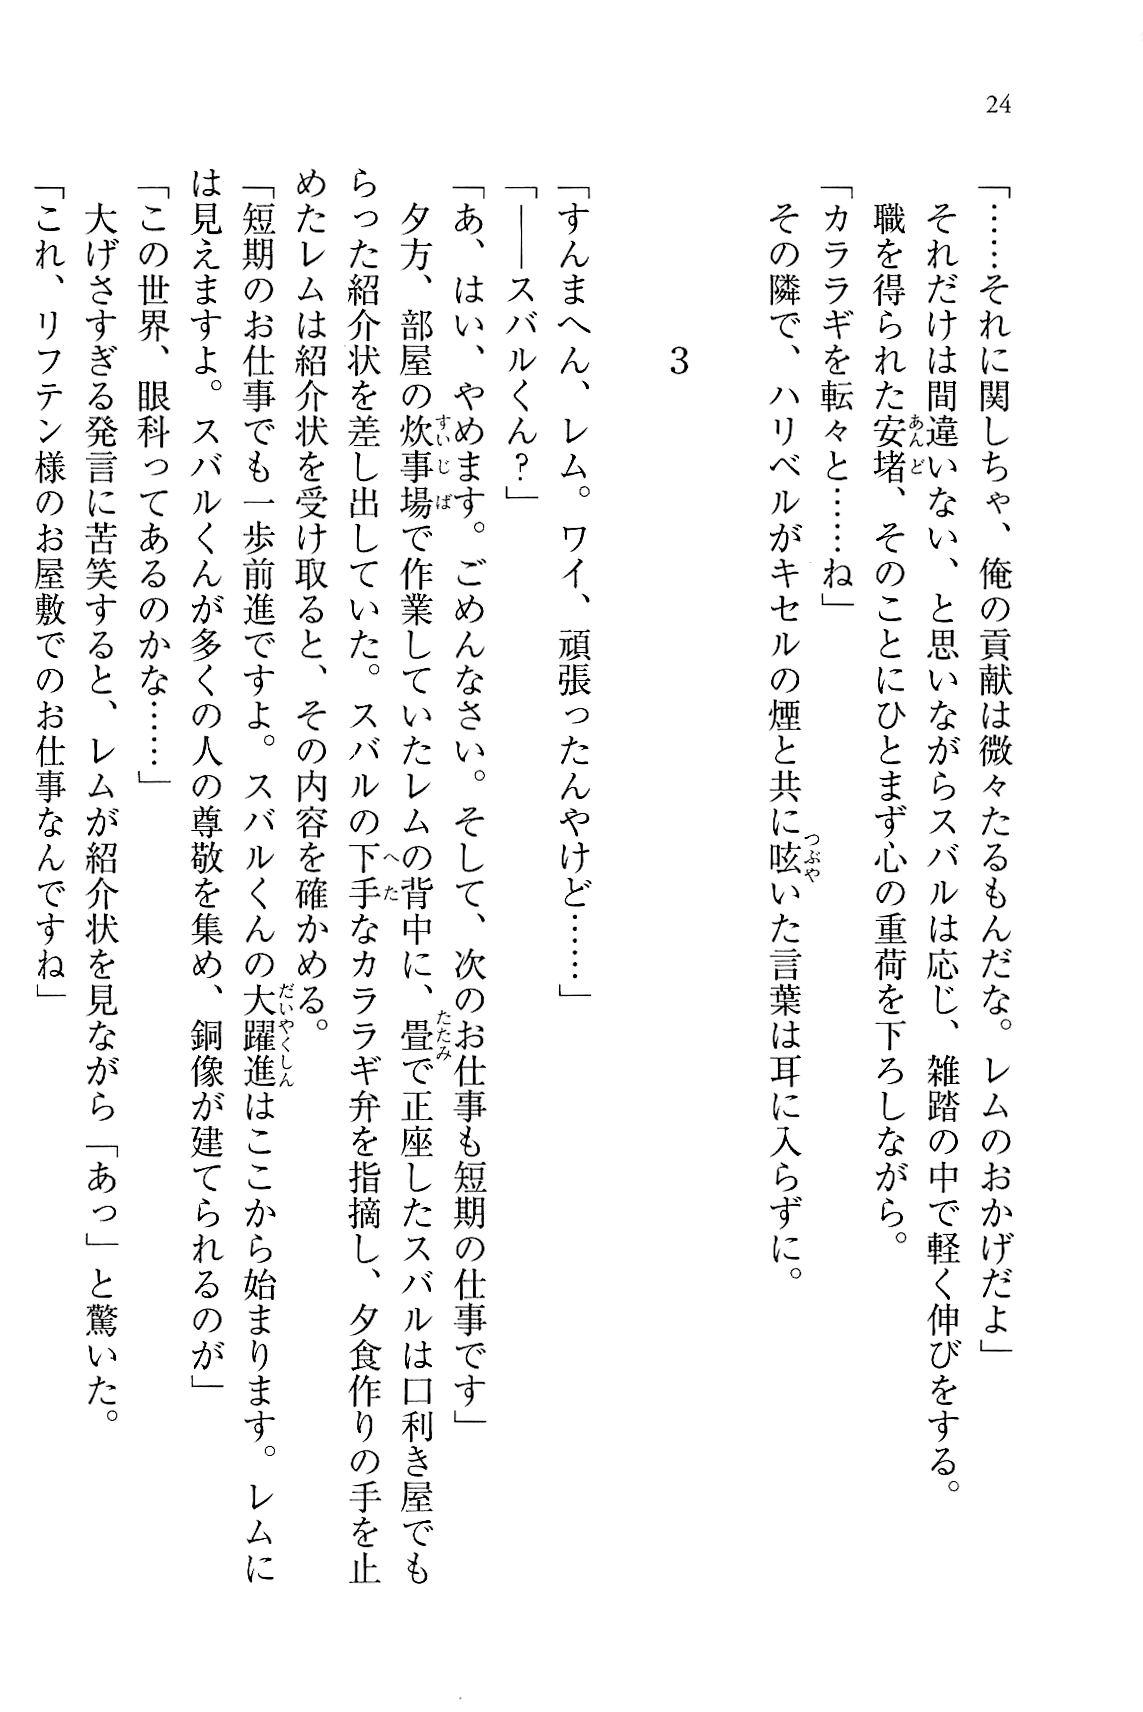 24
「……それに関しちゃ、俺の貢献は微々たるもんだな。レムのおかげだよ」
それだけは間違いない、と思いながらスバルは応じ、雑踏の中で軽く伸びをする。
職を得られた安堵、そのことにひとまず心の重荷を下ろしながら。
「カララギを転々と……ね」
その隣で、ハリベルがキセルの煙と共に呟いた言葉は耳に入らずに。
3
「すんまへん、レム。ワイ、頑張ったんやけど……」
「――スバルくん？」
「あ、はい、やめます。ごめんなさい。そして、次のお仕事も短期の仕事です」
夕方、部屋の炊事場で作業していたレムの背中に、畳で正座したスバルは口利き屋でも
らった紹介状を差し出していた。スバルの下手なカララギ弁を指摘し、夕食作りの手を止
めたレムは紹介状を受け取ると、その内容を確かめる。
「短期のお仕事でも一歩前進ですよ。スバルくんの大躍進はここから始まります。レムに
は見えますよ。スバルくんが多くの人の尊敬を集め、銅像が建てられるのが」
「この世界、眼科ってあるのかな……」
大げさすぎる発言に苦笑すると、レムが紹介状を見ながら「あっ」と驚いた。
「これ、リフテン様のお屋敷でのお仕事なんですね」